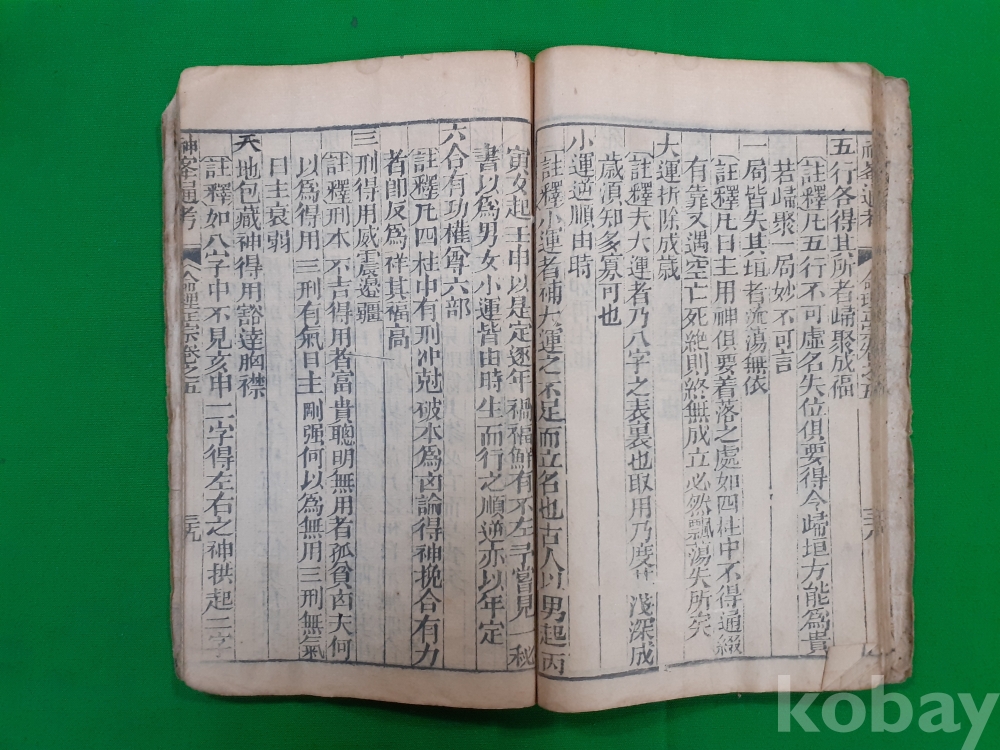 五行各得其所者歸聚成福
註釋凡五行不可虛名失位俱要得令歸垣方能為貴
若歸聚一局妙不可言
一局皆失其垣者流蕩無依
註釋凡日主用神俱要着落之處如四柱中不得通綴
有靠又遇空亡死絕則終無成立必然飄蕩失所矣
大運折除成歲
註釋夫大運者乃八字之表裏也取用乃度 淺深成
歲須知多寡可也
小運逆順由時
註釋小運者補大運之不足而立名也古人以男起丙
寅女起壬申以是定逐年禍福鮮有不左予嘗見一秘
書以為男女小運皆由時生而行之順逆亦以年定
六合有功權尊六部
註釋凡四柱中有刑冲尅破本為凶論得神挽合有力
者卽反為祥其福高
三刑得用威震邊疆
註釋刑本不吉得用者富貴聰明無用者孤貧凶夫何
以為得用三刑有氣日主剛强何以為無用三刑無氣
日主衰弱
天地包藏神得用豁達胸襟
註釋如八字中不見亥申二字得左右之神拱起二字
神峯通考 命理正宗卷之五 三九
kobay